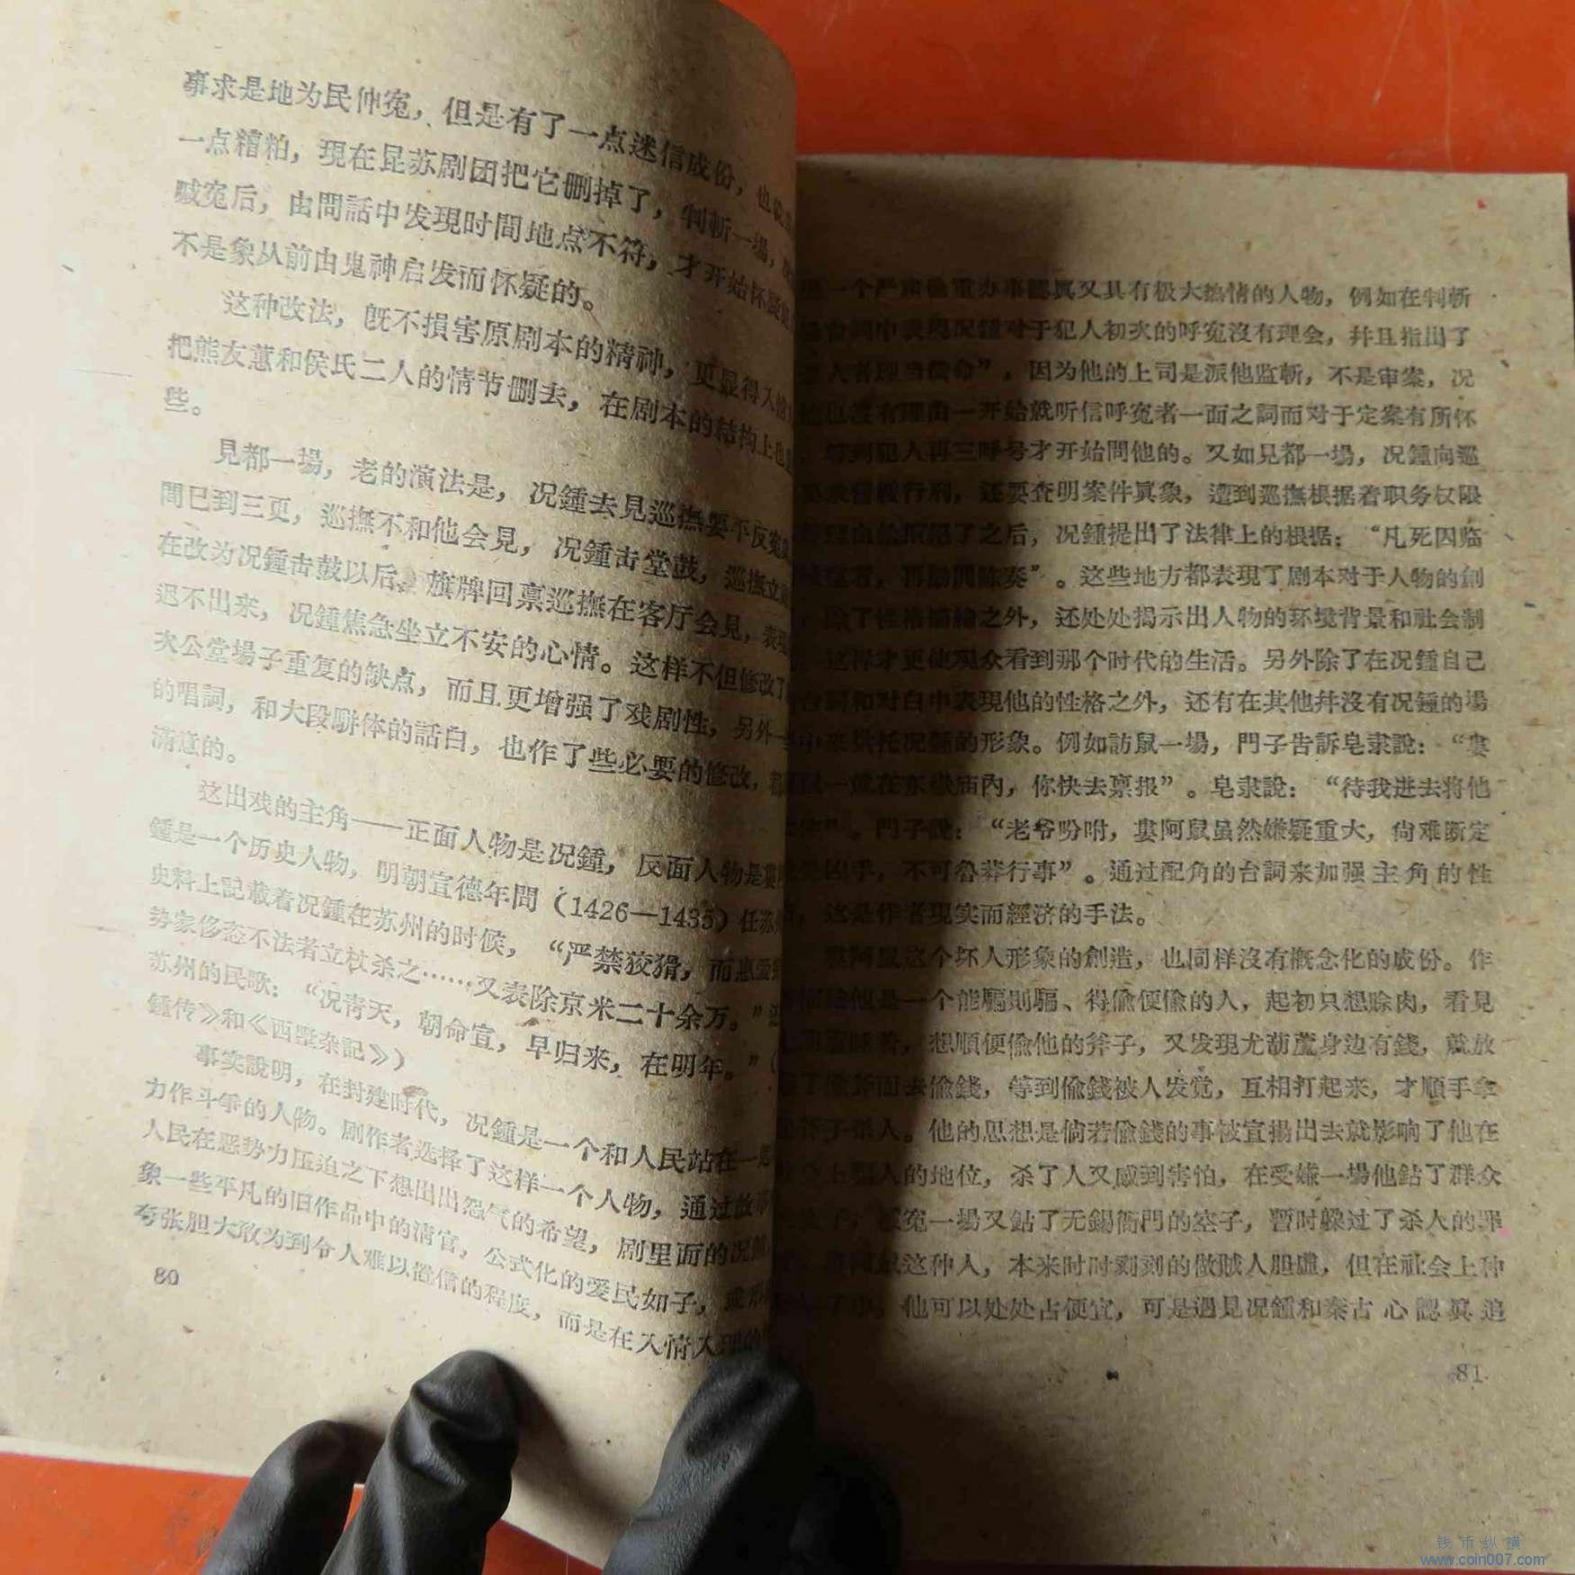 事求是地为民伸冤，但是有了一点迷信成份，也
一点糟粕，現在昆苏剧团把它删掉了，判斬一場，
喊冤后，由問話中发現时間地点不符，才开始怀疑
不是象从前由鬼神启发而怀疑的。
这种改法，旣不損害原剧本的精神，更显得人
把熊友蕙和侯氏二人的情节删去，在剧本的結构上也
些。
見都一場，老的演法是，况鍾去見巡撫要平反冤
間已到三更，巡撫不和他会見，况鍾击堂鼓，巡撫立
在改为况鍾击鼓以后，旗牌回稟巡撫在客厅会見，表
迟不出来，况鍾焦急坐立不安的心情。这样不但修改了
次公堂場子重复的缺点，而且更增强了戏剧性，另外
的唱詞，和大段駢体的話白，也作了些必要的修改，
清道的。
这出戏的主角——正面人物是况鍾，反面人物是
鍾是一个历史人物，明朝宣德年間（1426—1435）任苏
史料上記載着况鍾在苏州的时候，“严禁狡猾，而惠
势家侈态不法者立杖杀之……又表除京米二十余万。”
苏州的民歌：“况青天，朝命宣，早归来，在明年。”（
鍾传》和《西墅杂記》）
事实說明，在封建时代，况鍾是一个和人民站在一
力作斗爭的人物。剧作者选择了这样一个人物，通过故事
人民在恶势力压迫之下想出出怨气的希望，剧里面的况
象一些平凡的旧作品中的清官，公式化的爱民如子，
夸张胆大敢为到令人难以置信的程度，而是在入情入理的
80
一个严肃 重办事認真又具有极大热情的人物，例如在判斬
台詞中表現况鍾对于犯人初次的呼冤沒有理会，幷且指出了
人者理当償命”，因为他的上司是派他监斬，不是审案，况
也沒有理由一开始就听信呼冤者一面之詞而对于定案有所怀
等到犯人再三呼号才开始問他的。又如見都一場，况鍾向巡
要求暫緩行刑，还要查明案件眞象，遭到巡撫根据着职务权限
理由 拒絕了之后，况鍾提出了法律上的根据：“凡死囚临
者，再勘問 奏”。这些地方都表現了剧本对于人物的創
除了性格描繪之外，还处处揭示出人物的环境背景和社会制
这样才更使观众看到那个时代的生活。另外除了在况鍾自己
台詞和对白中表現他的性格之外，还有在其他幷沒有况鍾的場
中来烘托况鍾的形象。例如訪鼠一場，門子告訴皂隶說：“婁
鼠一就在东嶽庙內，你快去稟报”。皂隶說：“待我进去将他
”。門子說：“老爷吩咐，婁阿鼠虽然嫌疑重大，尙难断定
是凶手，不可魯莽行事”。通过配角的台詞来加强主角的性
，这是作者現实而經济的手法。
婁阿鼠这个坏人形象的創造，也同样沒有概念化的成份。作
描繪他是一个能騙則騙、得偸便偸的人，起初只想賒肉，看見
睡着，想順便偸他的斧子，又发現尤葫蘆身边有錢，就放
了偸斧而去偸錢，等到偸錢被人发觉，互相打起来，才順手拿
斧子杀人。他的思想是倘若偸錢的事被宣揚出去就影响了他在
上騙人的地位，杀了人又感到害怕，在受嫌一場他鉆了群众
，冤一場又鉆了无錫衙門的空子，暫时躱过了杀人的罪
鼠这种人，本来时时刻刻的做賊人胆虛，但在社会上种
中，他可以处处占便宜，可是遇見况鍾和秦古心認眞追
81
钱币纵横
www.coin007.com